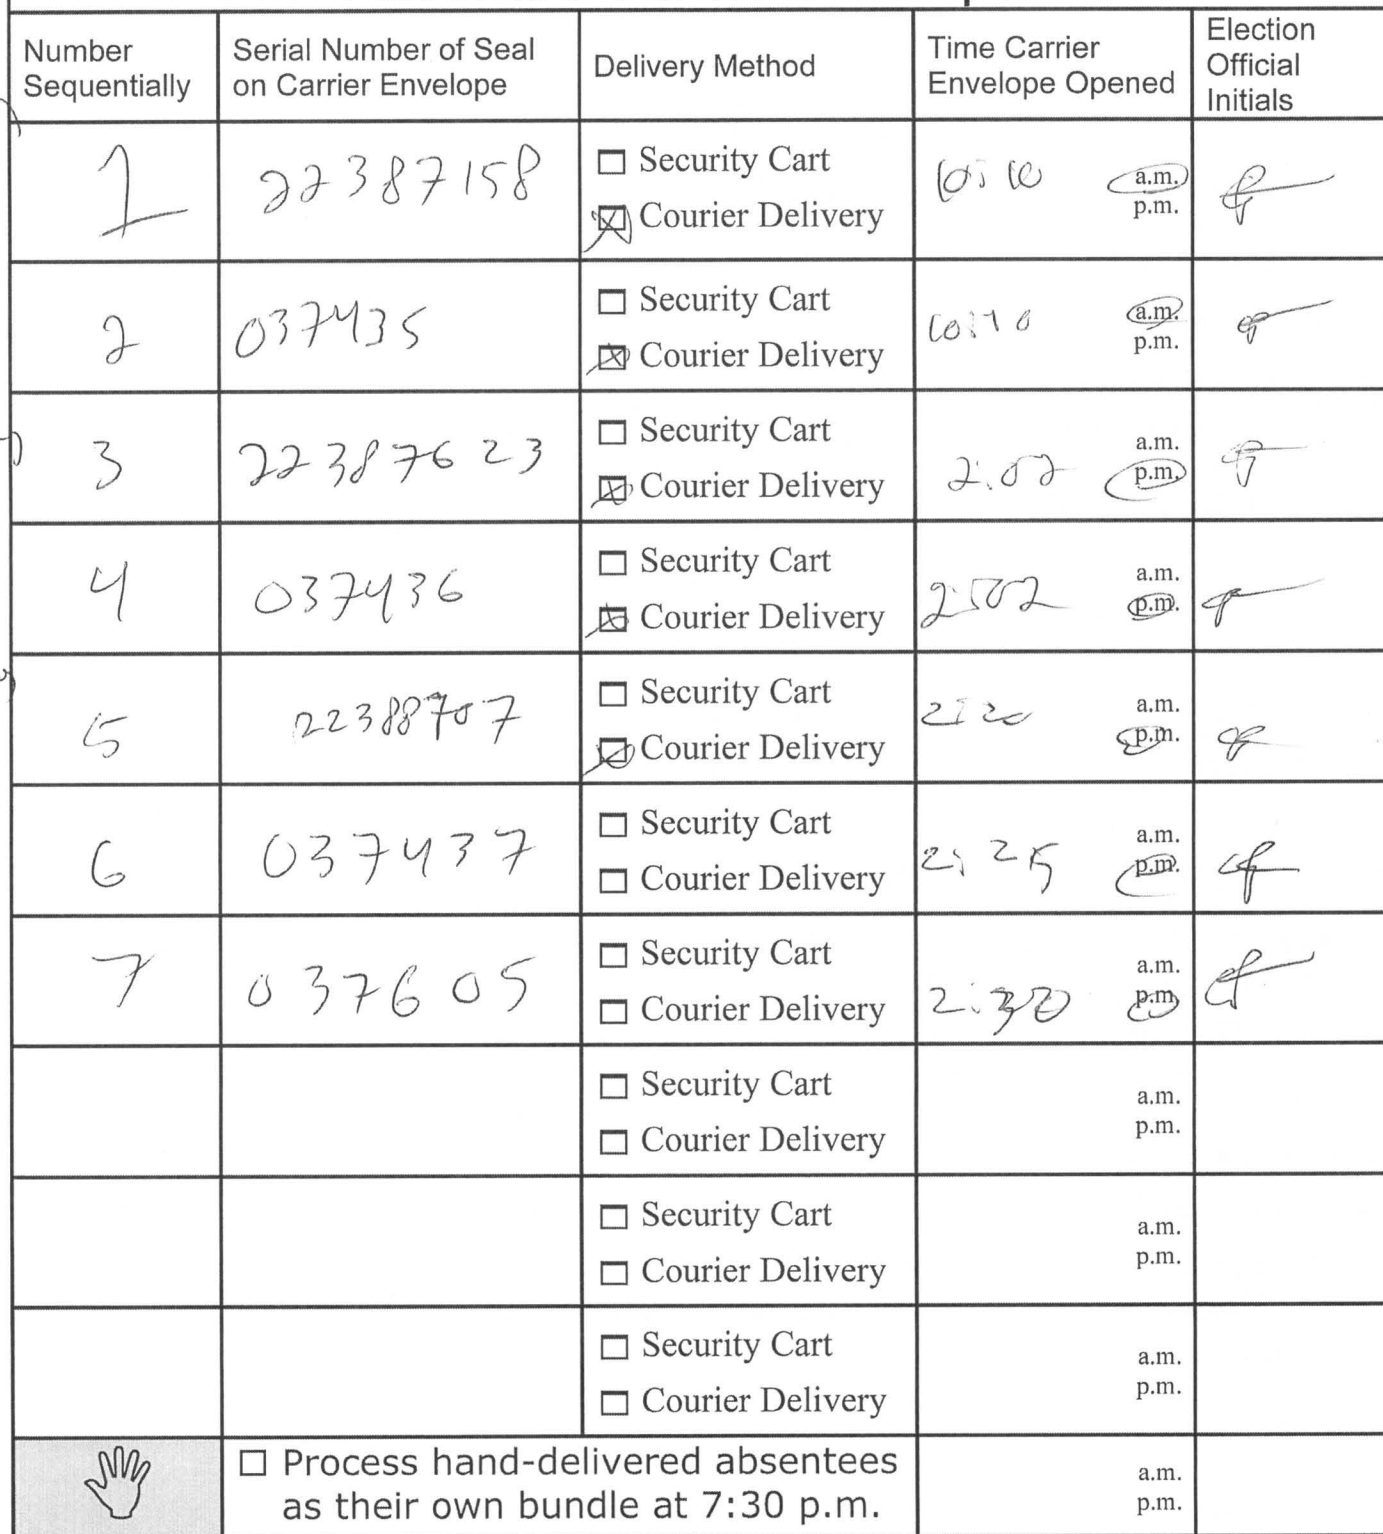 Number Sequentially
Serial Number of Seal on Carrier Envelope
Delivery Method
Time Carrier Envelope Opened
Election Official Initials
1
22387158
☐ Security Cart
☒ Courier Delivery
10:10
a.m.
p.m.
2
037435
☐ Security Cart
☒ Courier Delivery
10:10
a.m.
p.m.
3
22387623
☐ Security Cart
☒ Courier Delivery
2:02
a.m.
p.m.
4
037436
☐ Security Cart
☒ Courier Delivery
a.m.
p.m.
5
22388707
☐ Security Cart
☒ Courier Delivery
2:20
a.m.
p.m.
6
037437
☐ Security Cart
☐ Courier Delivery
2:25
a.m.
p.m.
7
037605
☐ Security Cart
☐ Courier Delivery
2:30
a.m.
p.m.
☐ Security Cart
☐ Courier Delivery
a.m.
p.m.
☐ Security Cart
☐ Courier Delivery
a.m.
p.m.
☐ Security Cart
☐ Courier Delivery
a.m.
p.m.
☐ Process hand-delivered absentees
as their own bundle at 7:30 p.m.
a.m.
p.m.